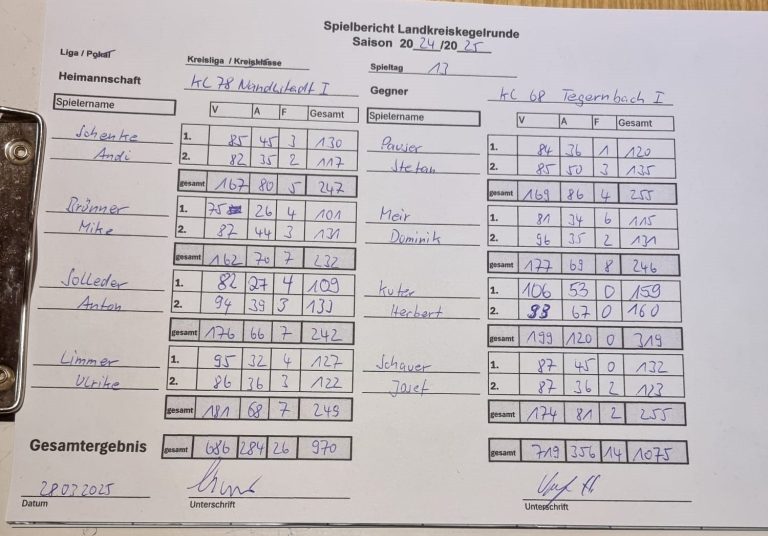 Spielbericht Landkreiskegelrunde
Saison 2024/2025
Liga / Pokal Kreisliga / Kreisklasse Spieltag 13
Heimannschaft KC 78 Nandlstadt I Gegner KC 68 Tegernbach I
Spielername V A F Gesamt Spielername V A F Gesamt
Schenke 1. 85 45 3 130 Pauser 1. 84 36 1 120
Andi 2. 82 35 2 117 Stefan 2. 85 50 3 135
gesamt 167 80 5 247 gesamt 169 86 4 255
Brünner 1. 75 26 4 101 Meir 1. 81 34 6 115
Mike 2. 87 44 3 131 Dominik 2. 96 35 2 131
gesamt 162 70 7 232 gesamt 177 69 8 246
Solleder 1. 82 27 4 109 Kuter 1. 106 53 0 159
Anton 2. 94 39 3 133 Herbert 2. 93 67 0 160
gesamt 176 66 7 242 gesamt 199 120 0 319
Limmer 1. 95 32 4 127 Schauer 1. 87 45 0 132
Ulrike 2. 86 36 3 122 Josef 2. 87 36 2 123
gesamt 181 68 7 249 gesamt 174 81 2 255
Gesamtergebnis gesamt 686 284 26 970 gesamt 719 356 14 1075
28.03.2025
Datum Unterschrift Unterschrift